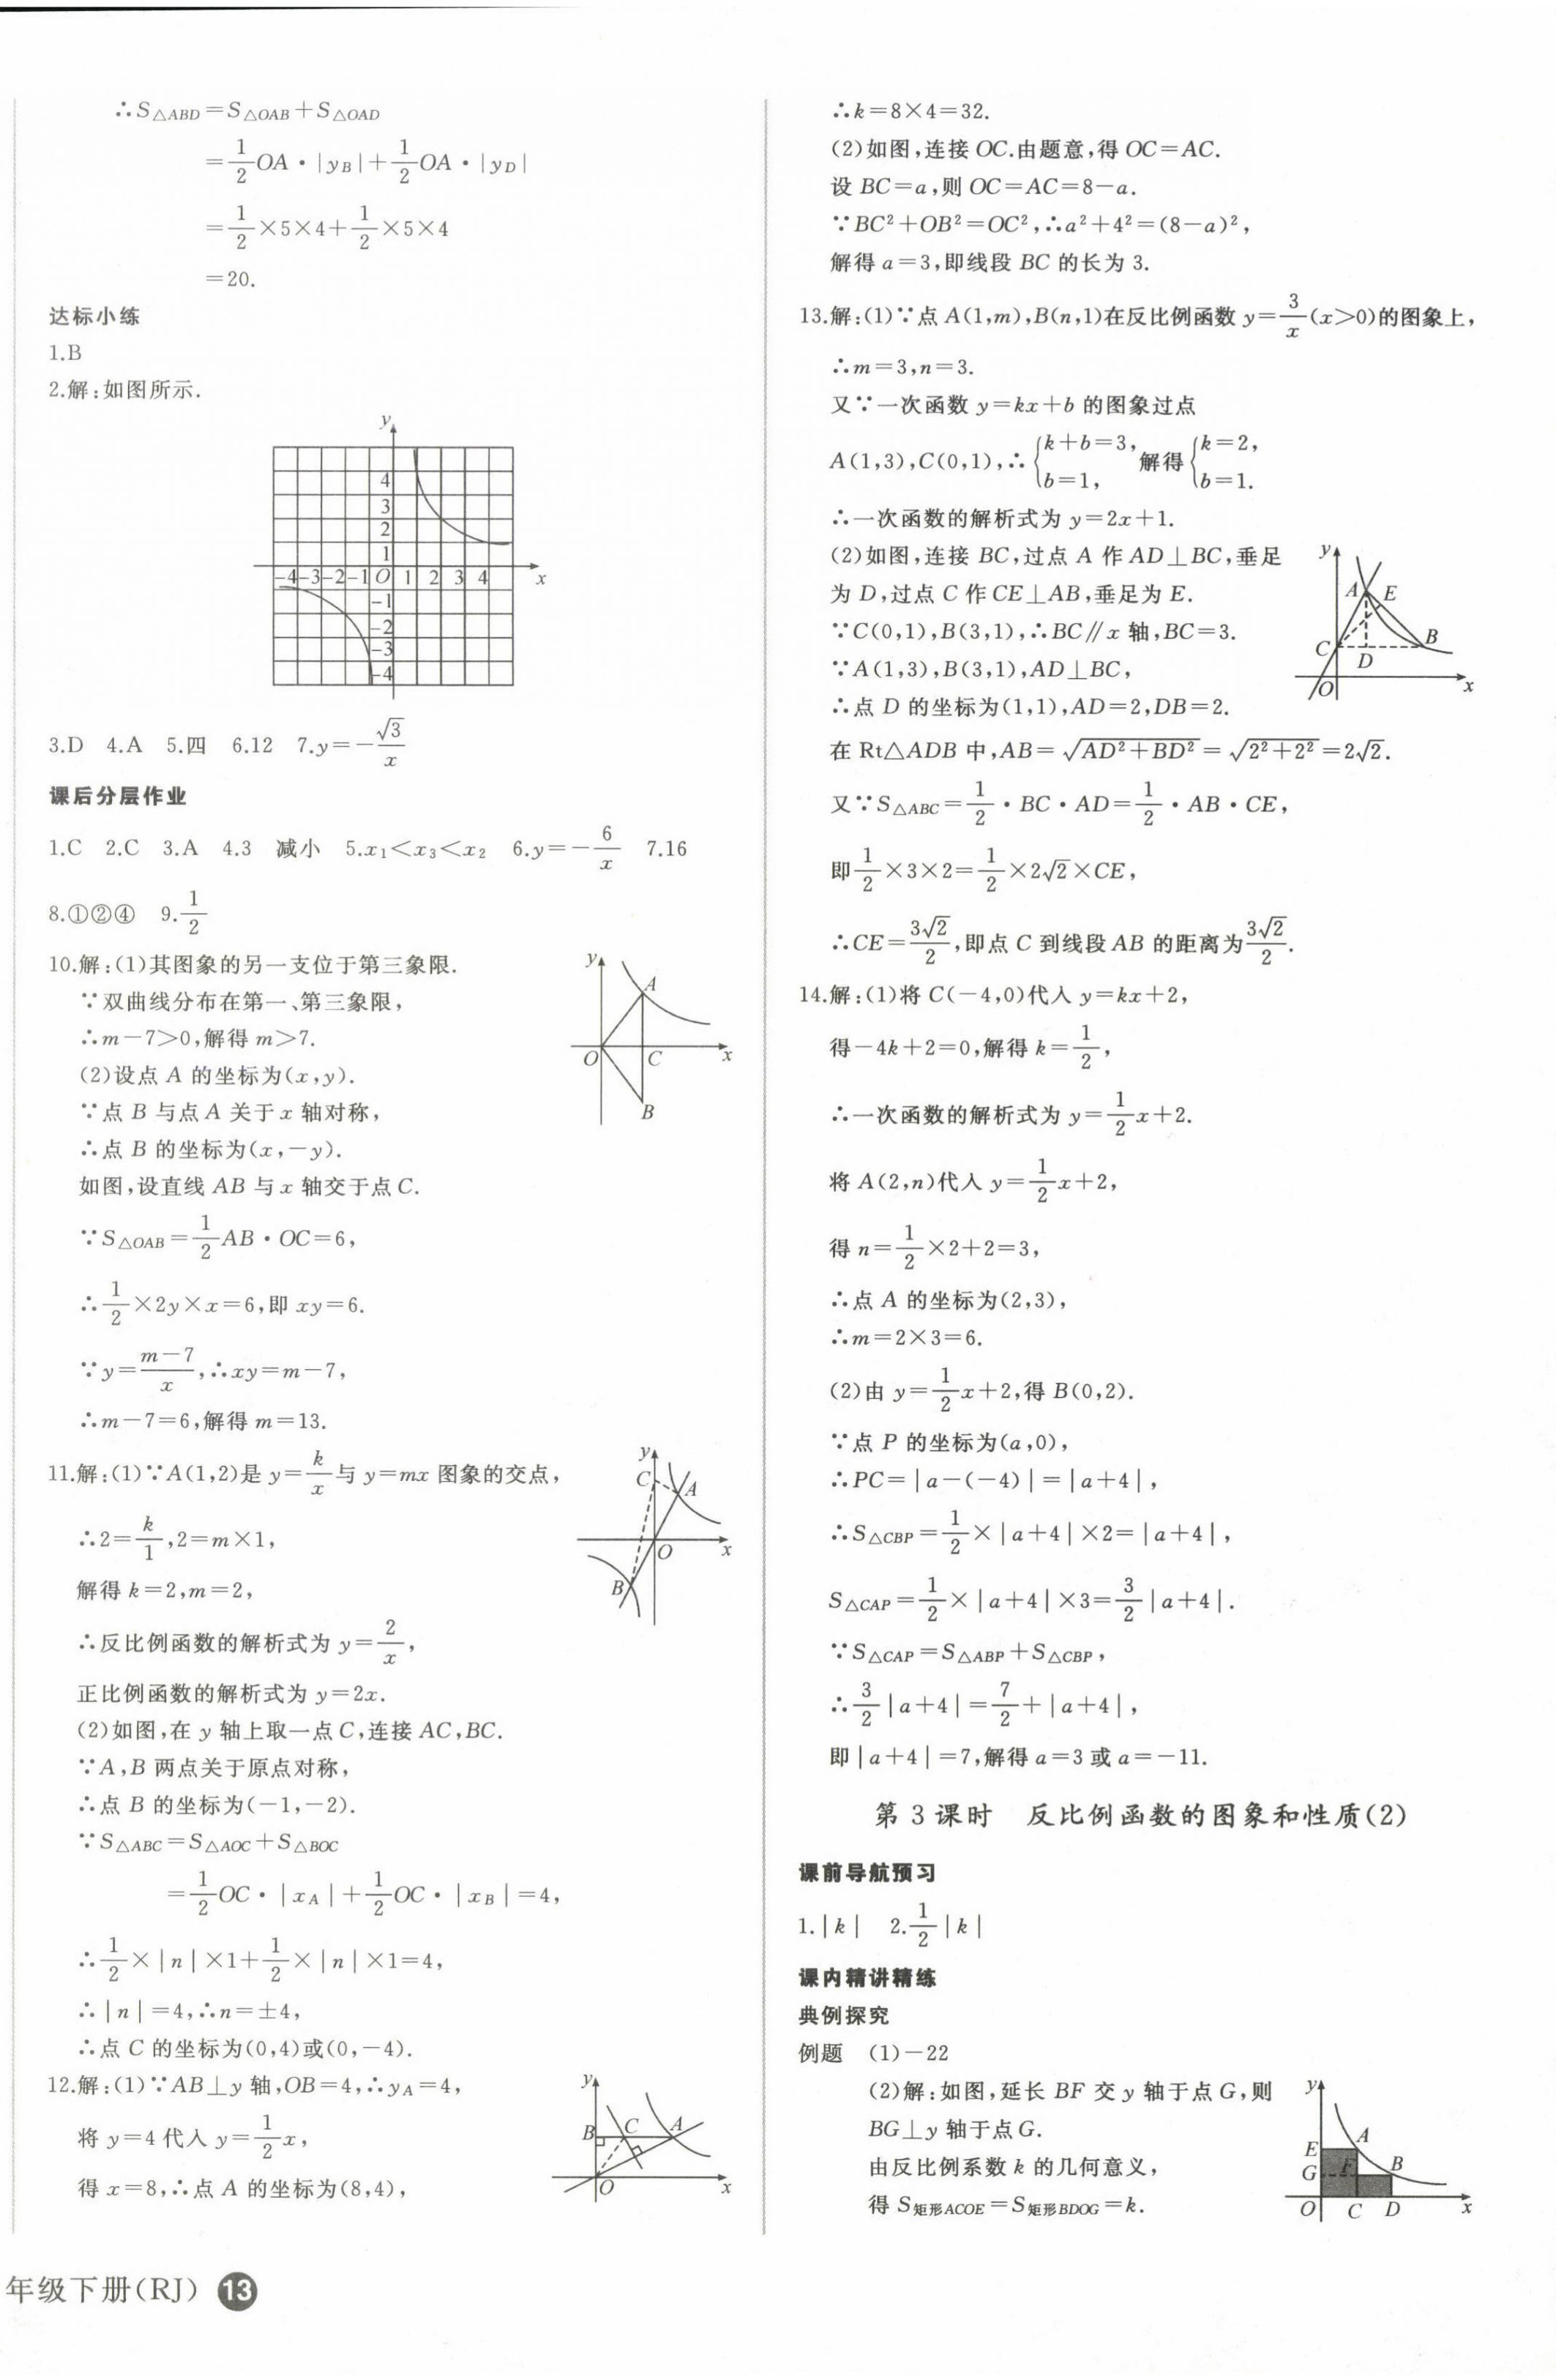 ∴S△ABD=S△OAB+S△OAD
=1/2 OA·|yB|+1/2 OA·|yD|
=1/2×5×4+1/2×5×4
=20.
达标小练
1.B
2.解:如图所示.
y
4
3
2
1
-4 -3 -2 -1 O 1 2 3 4 x
-1
-2
-3
-4
3.D 4.A 5.四 6.12 7.y=-√3/x
课后分层作业
1.C 2.C 3.A 4.3 减小 5.x₁<x₃<x₂ 6.y=-6/x 7.16
8.①②④ 9.1/2
10.解:(1)其图象的另一支位于第三象限.
∵双曲线分布在第一、第三象限,
∴m-7>0,解得 m>7.
(2)设点 A 的坐标为(x,y).
∵点 B 与点 A 关于 x 轴对称,
∴点 B 的坐标为(x,-y).
如图,设直线 AB 与 x 轴交于点 C.
∵S△OAB=1/2 AB·OC=6,
∴1/2×2y×x=6,即 xy=6.
∵y=(m-7)/x,∴xy=m-7,
∴m-7=6,解得 m=13.
y
A
O C x
B
11.解:(1)∵A(1,2)是 y=k/x 与 y=mx 图象的交点,
∴2=k/1,2=m×1,
解得 k=2,m=2,
∴反比例函数的解析式为 y=2/x,
正比例函数的解析式为 y=2x.
(2)如图,在 y 轴上取一点 C,连接 AC,BC.
∵A,B 两点关于原点对称,
∴点 B 的坐标为(-1,-2).
∵S△ABC=S△AOC+S△BOC
=1/2 OC·|xA|+1/2 OC·|xB|=4,
∴1/2×|n|×1+1/2×|n|×1=4,
∴|n|=4,∴n=±4,
∴点 C 的坐标为(0,4)或(0,-4).
y
C
A
O x
B
12.解:(1)∵AB⊥y 轴,OB=4,∴yA=4,
将 y=4 代入 y=1/2 x,
得 x=8,∴点 A 的坐标为(8,4),
y
B C A
O x
∴k=8×4=32.
(2)如图,连接 OC.由题意,得 OC=AC.
设 BC=a,则 OC=AC=8-a.
∵BC²+OB²=OC²,∴a²+4²=(8-a)²,
解得 a=3,即线段 BC 的长为 3.
13.解:(1)∵点 A(1,m),B(n,1)在反比例函数 y=3/x(x>0)的图象上,
∴m=3,n=3.
又∵一次函数 y=kx+b 的图象过点
A(1,3),C(0,1),∴{k+b=3, b=1, 解得{k=2, b=1.
∴一次函数的解析式为 y=2x+1.
(2)如图,连接 BC,过点 A 作 AD⊥BC,垂足
为 D,过点 C 作 CE⊥AB,垂足为 E.
∵C(0,1),B(3,1),∴BC∥x 轴,BC=3.
∵A(1,3),B(3,1),AD⊥BC,
∴点 D 的坐标为(1,1),AD=2,DB=2.
在 Rt△ADB 中,AB=√(AD²+BD²)=√(2²+2²)=2√2.
又∵S△ABC=1/2·BC·AD=1/2·AB·CE,
即1/2×3×2=1/2×2√2×CE,
∴CE=3√2/2,即点 C 到线段 AB 的距离为3√2/2.
y
A E
C D B
O x
14.解:(1)将 C(-4,0)代入 y=kx+2,
得-4k+2=0,解得 k=1/2,
∴一次函数的解析式为 y=1/2 x+2.
将 A(2,n)代入 y=1/2 x+2,
得 n=1/2×2+2=3,
∴点 A 的坐标为(2,3),
∴m=2×3=6.
(2)由 y=1/2 x+2,得 B(0,2).
∵点 P 的坐标为(a,0),
∴PC=|a-(-4)|=|a+4|,
∴S△CBP=1/2×|a+4|×2=|a+4|,
S△CAP=1/2×|a+4|×3=3/2|a+4|.
∵S△CAP=S△ABP+S△CBP,
∴3/2|a+4|=7/2+|a+4|,
即|a+4|=7,解得 a=3 或 a=-11.
第 3 课时 反比例函数的图象和性质(2)
课前导航预习
1.|k| 2.1/2|k|
课内精讲精练
典例探究
例题 (1)-22
(2)解:如图,延长 BF 交 y 轴于点 G,则
BG⊥y 轴于点 G.
由反比例系数 k 的几何意义,
得 S矩形ACOE=S矩形BDOG=k.
y
E A
G F B
O C D x
年级下册(RJ) 13